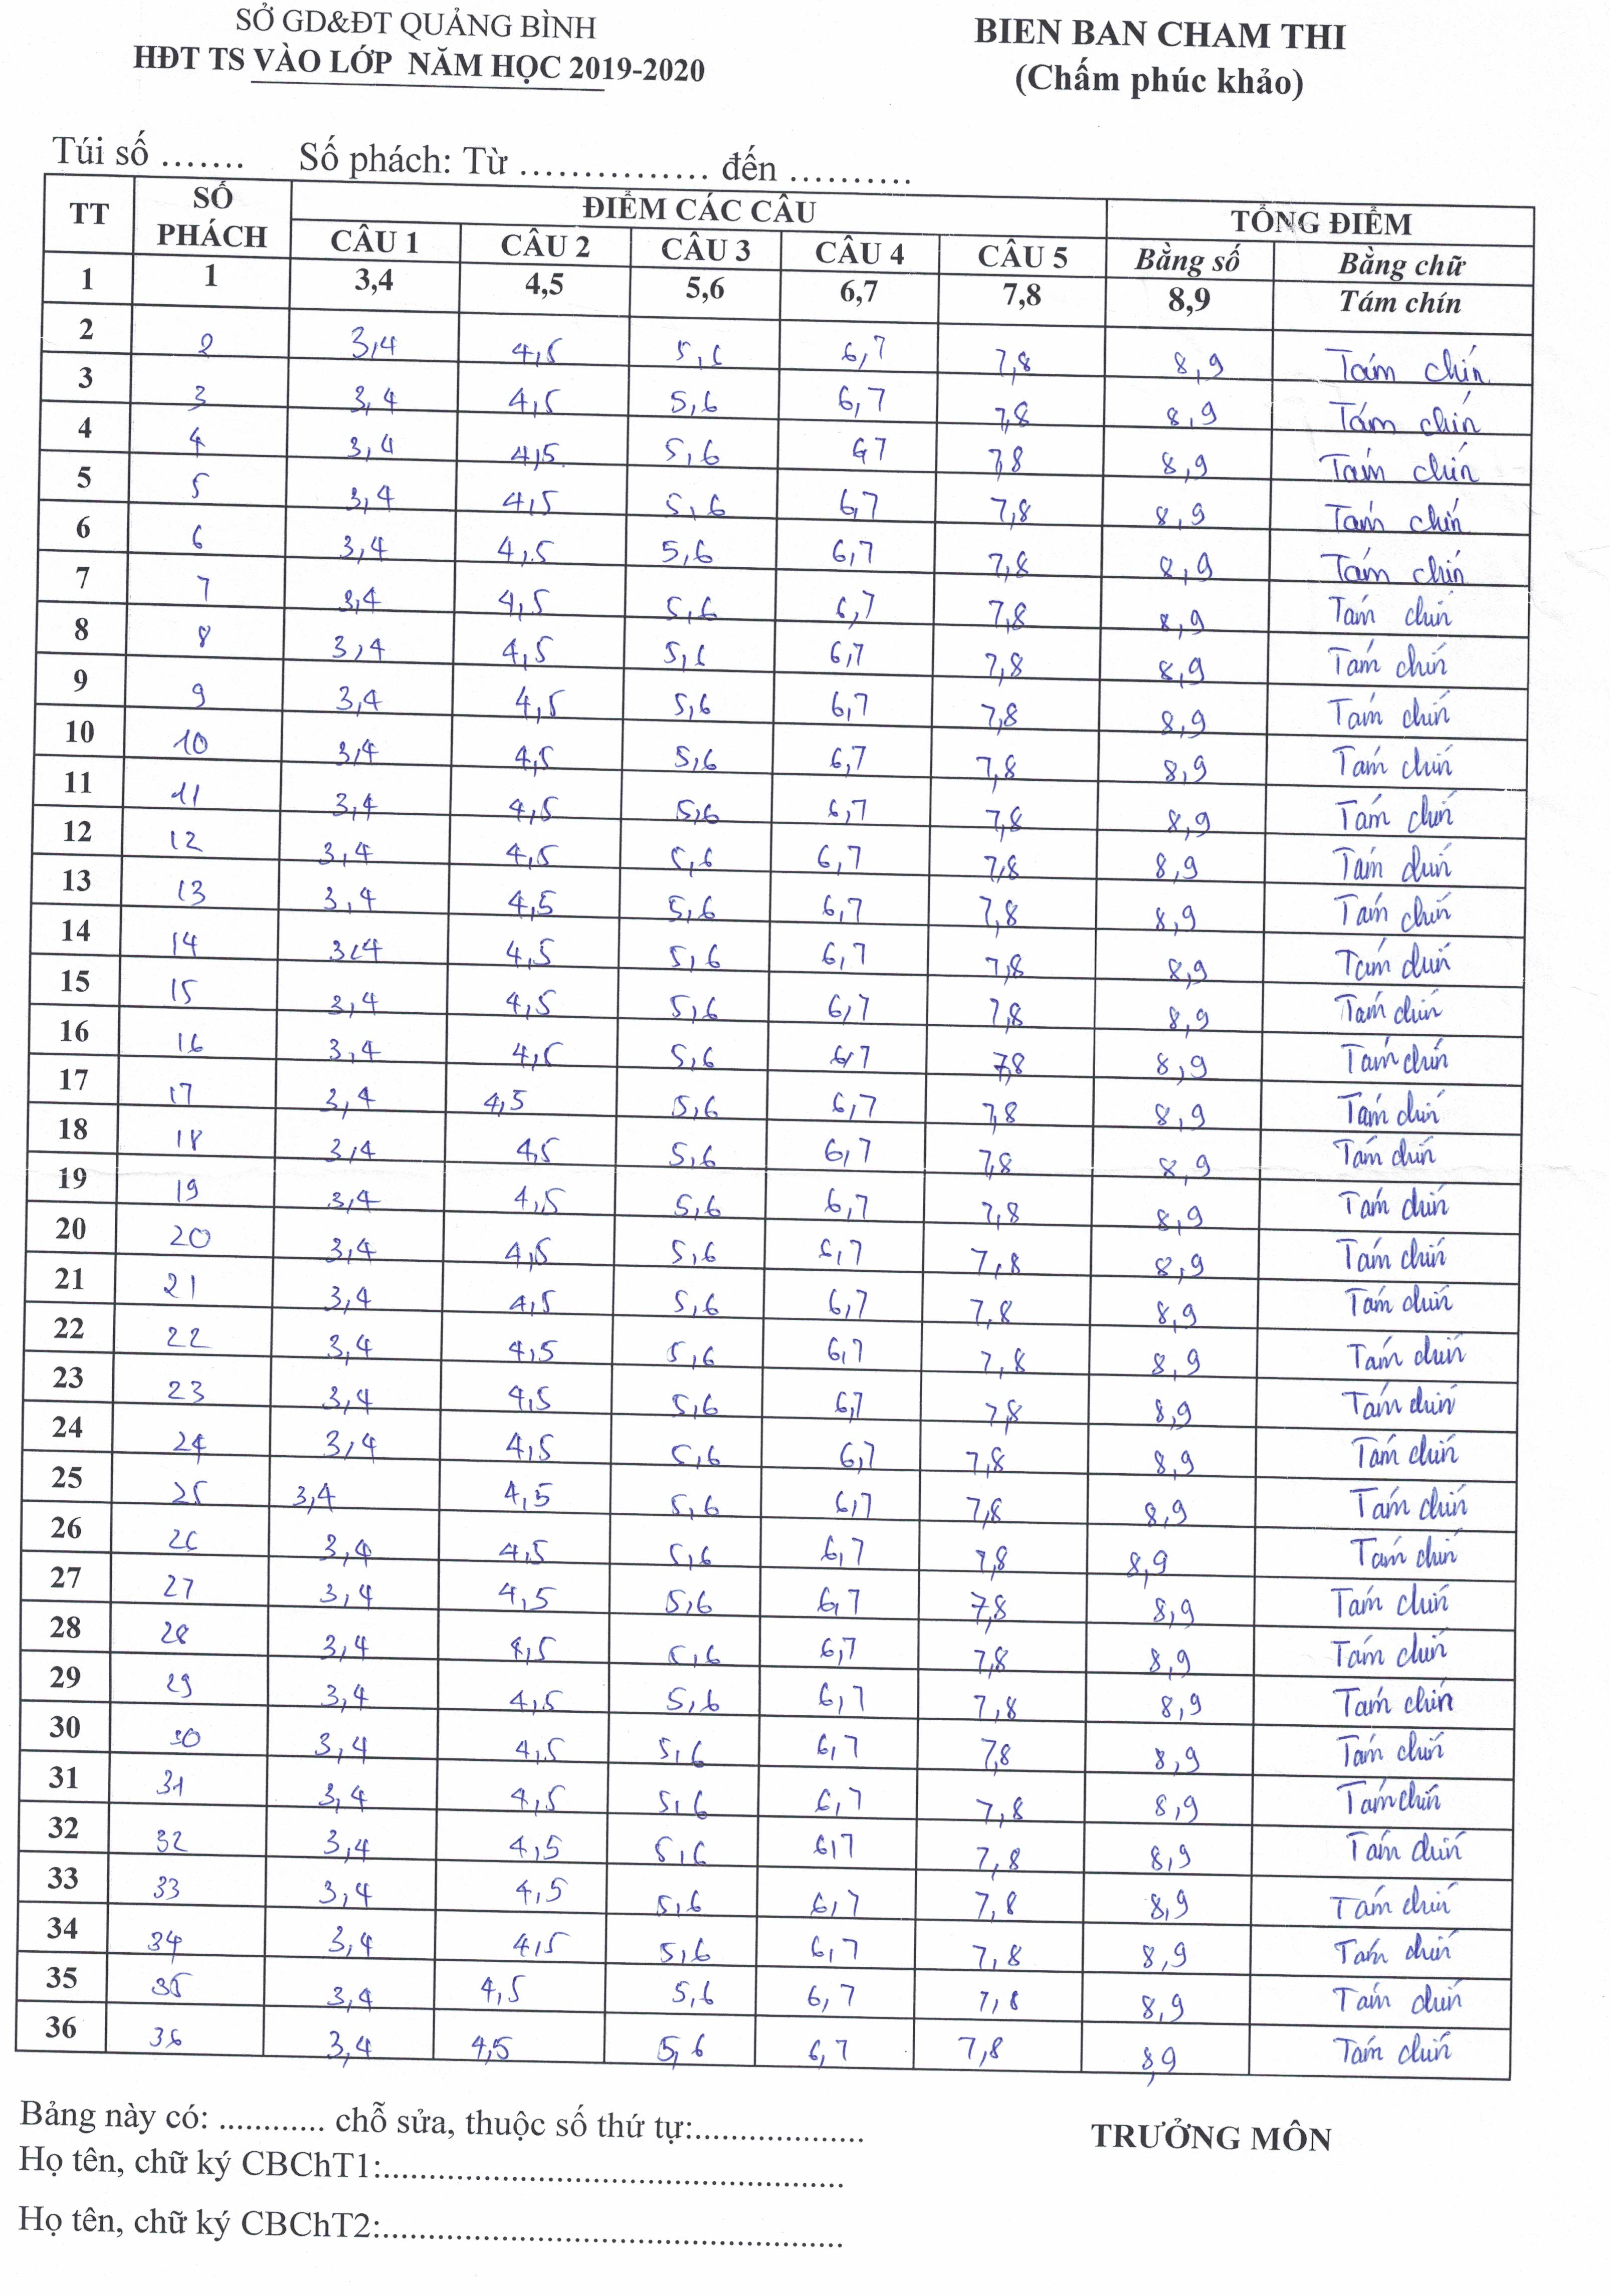 SỞ GD&ĐT QUẢNG BÌNH
HĐT TS VÀO LỚP NĂM HỌC 2019-2020
BIEN BAN CHAM THI
(Chấm phúc khảo)
Túi số ....... Số phách: Từ ............... đến ..........
TT SỐ PHÁCH ĐIỂM CÁC CÂU TỔNG ĐIỂM
CÂU 1 CÂU 2 CÂU 3 CÂU 4 CÂU 5 Bằng số Bằng chữ
1 1 3,4 4,5 5,6 6,7 7,8 8,9 Tám chín
2 2 3,4 4,5 5,6 6,7 7,8 8,9 Tám chín
3 3 3,4 4,5 5,6 6,7 7,8 8,9 Tám chín
4 4 3,4 4,5 5,6 6,7 7,8 8,9 Tám chín
5 5 3,4 4,5 5,6 6,7 7,8 8,9 Tám chín
6 6 3,4 4,5 5,6 6,7 7,8 8,9 Tám chín
7 7 3,4 4,5 5,6 6,7 7,8 8,9 Tám chín
8 8 3,4 4,5 5,6 6,7 7,8 8,9 Tám chín
9 9 3,4 4,5 5,6 6,7 7,8 8,9 Tám chín
10 10 3,4 4,5 5,6 6,7 7,8 8,9 Tám chín
11 11 3,4 4,5 5,6 6,7 7,8 8,9 Tám chín
12 12 3,4 4,5 5,6 6,7 7,8 8,9 Tám chín
13 13 3,4 4,5 5,6 6,7 7,8 8,9 Tám chín
14 14 3,4 4,5 5,6 6,7 7,8 8,9 Tám chín
15 15 3,4 4,5 5,6 6,7 7,8 8,9 Tám chín
16 16 3,4 4,5 5,6 6,7 7,8 8,9 Tám chín
17 17 3,4 4,5 5,6 6,7 7,8 8,9 Tám chín
18 18 3,4 4,5 5,6 6,7 7,8 8,9 Tám chín
19 19 3,4 4,5 5,6 6,7 7,8 8,9 Tám chín
20 20 3,4 4,5 5,6 6,7 7,8 8,9 Tám chín
21 21 3,4 4,5 5,6 6,7 7,8 8,9 Tám chín
22 22 3,4 4,5 5,6 6,7 7,8 8,9 Tám chín
23 23 3,4 4,5 5,6 6,7 7,8 8,9 Tám chín
24 24 3,4 4,5 5,6 6,7 7,8 8,9 Tám chín
25 25 3,4 4,5 5,6 6,7 7,8 8,9 Tám chín
26 26 3,4 4,5 5,6 6,7 7,8 8,9 Tám chín
27 27 3,4 4,5 5,6 6,7 7,8 8,9 Tám chín
28 28 3,4 4,5 5,6 6,7 7,8 8,9 Tám chín
29 29 3,4 4,5 5,6 6,7 7,8 8,9 Tám chín
30 30 3,4 4,5 5,6 6,7 7,8 8,9 Tám chín
31 31 3,4 4,5 5,6 6,7 7,8 8,9 Tám chín
32 32 3,4 4,5 5,6 6,7 7,8 8,9 Tám chín
33 33 3,4 4,5 5,6 6,7 7,8 8,9 Tám chín
34 34 3,4 4,5 5,6 6,7 7,8 8,9 Tám chín
35 35 3,4 4,5 5,6 6,7 7,8 8,9 Tám chín
36 36 3,4 4,5 5,6 6,7 7,8 8,9 Tám chín
Bảng này có: ............ chỗ sửa, thuộc số thứ tự:...................
TRƯỞNG MÔN
Họ tên, chữ ký CBChT1:...................................................
Họ tên, chữ ký CBChT2:...................................................